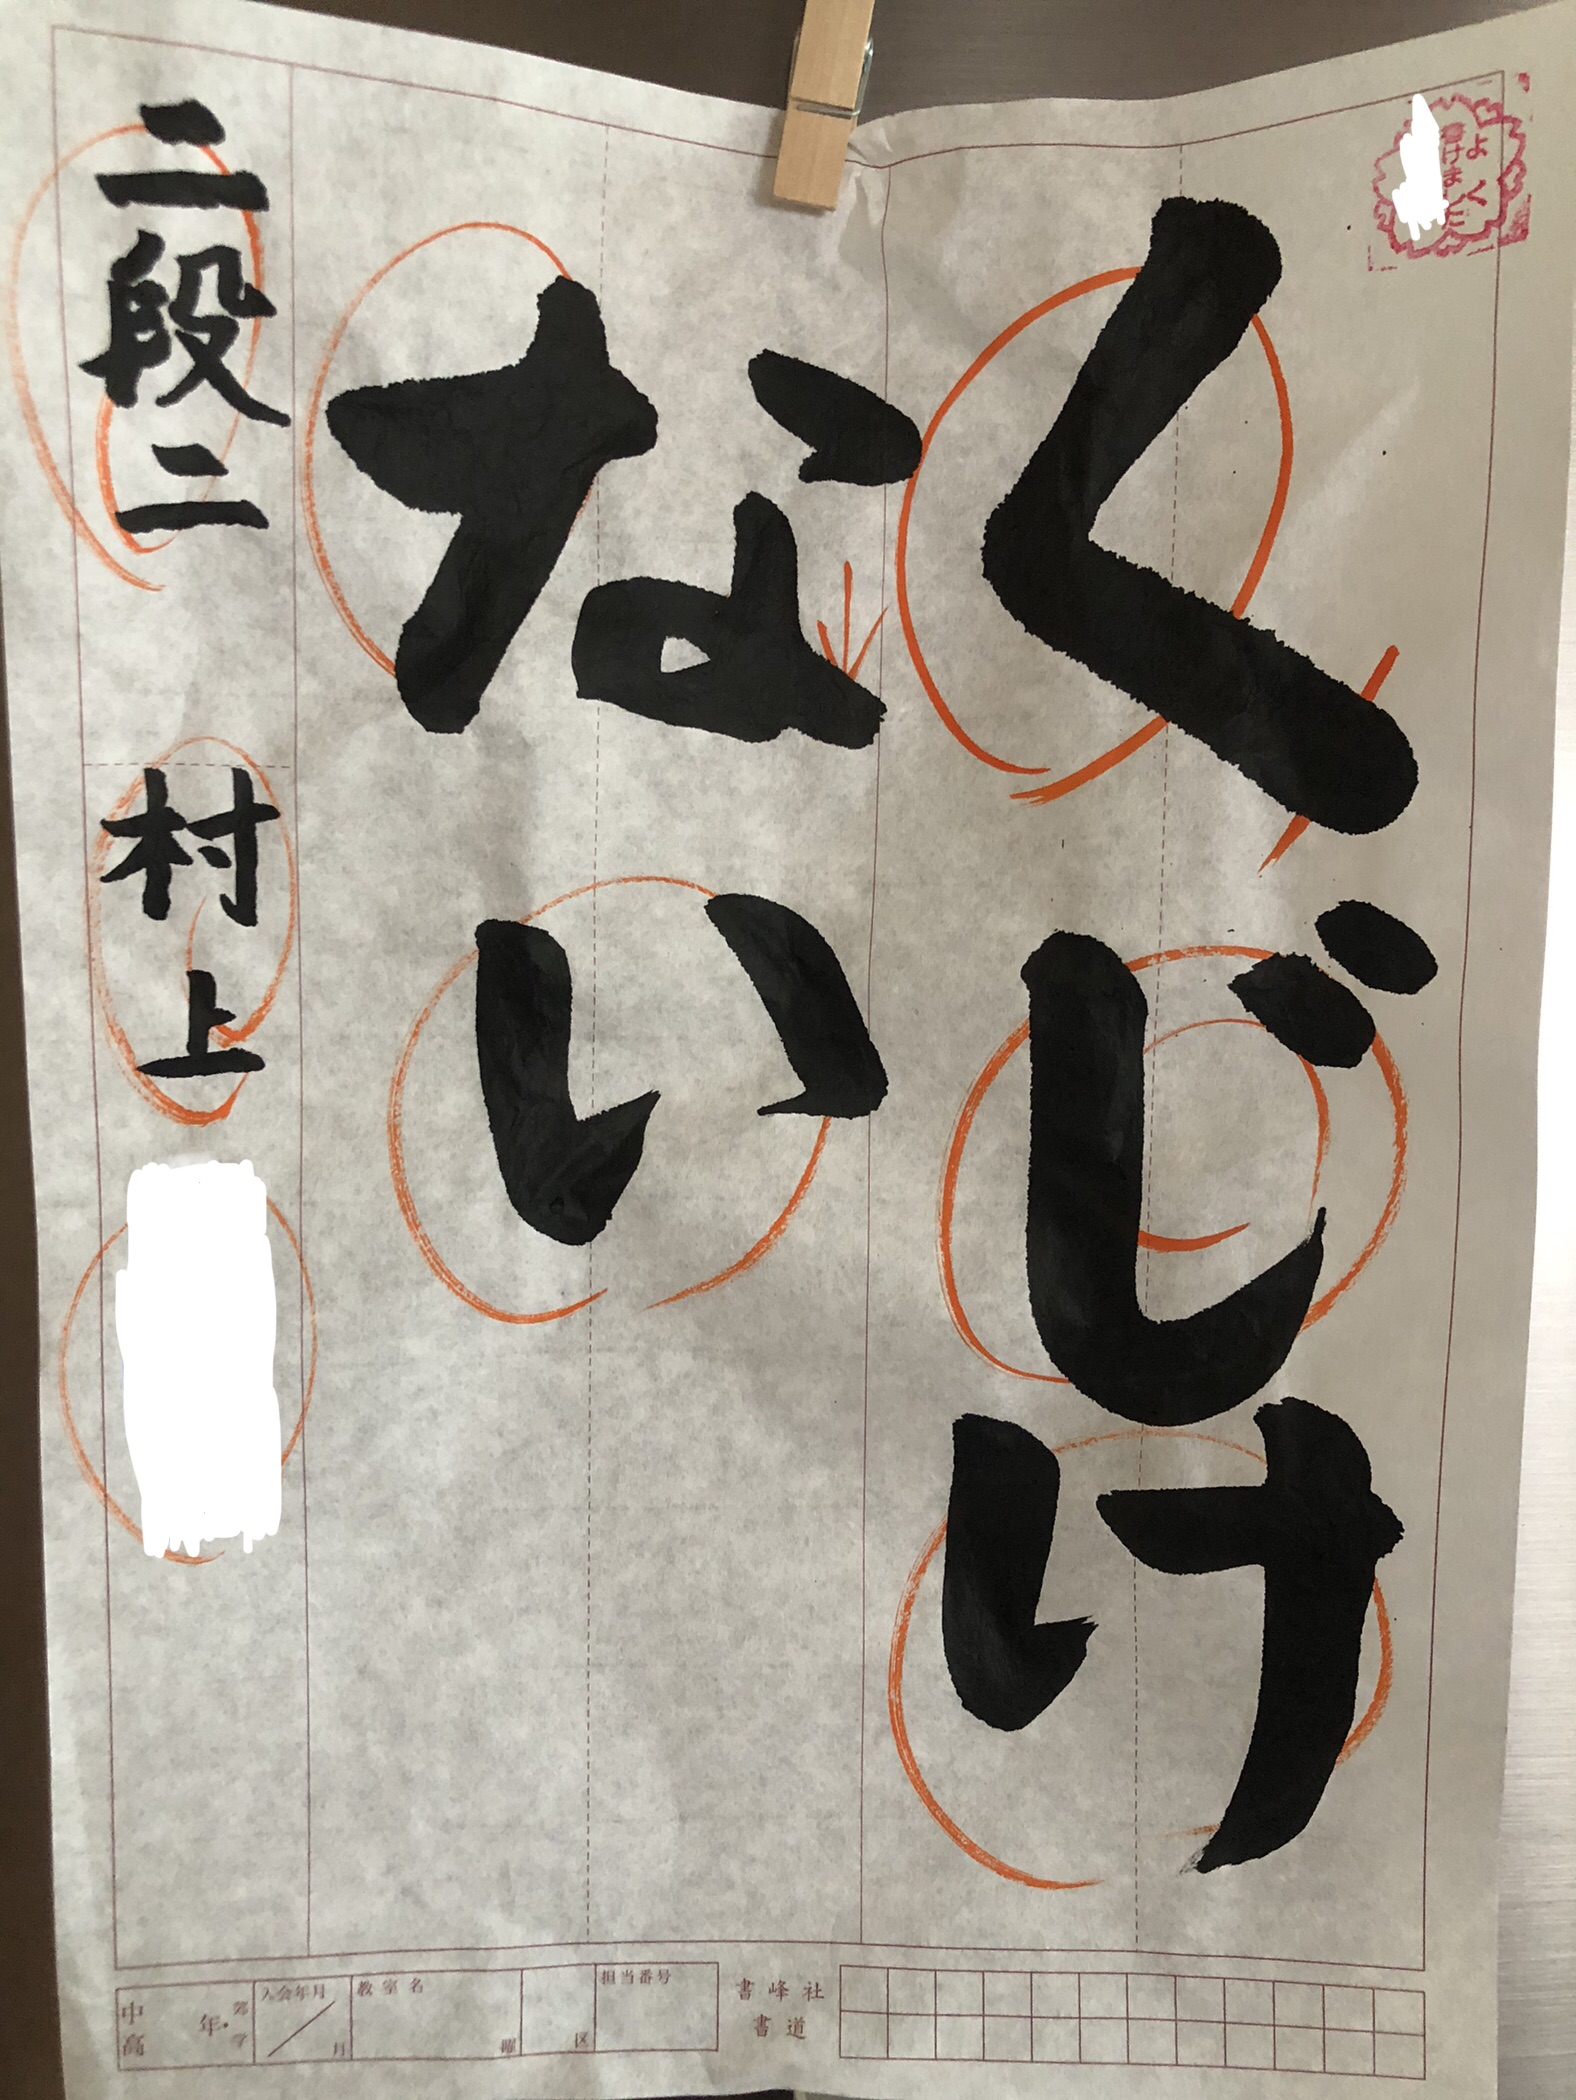 よく
書けました
くじけ
ない
二段二
村上
中
高
年
入会年月
月
教室名
曜
区
担当番号
書峰社
書道